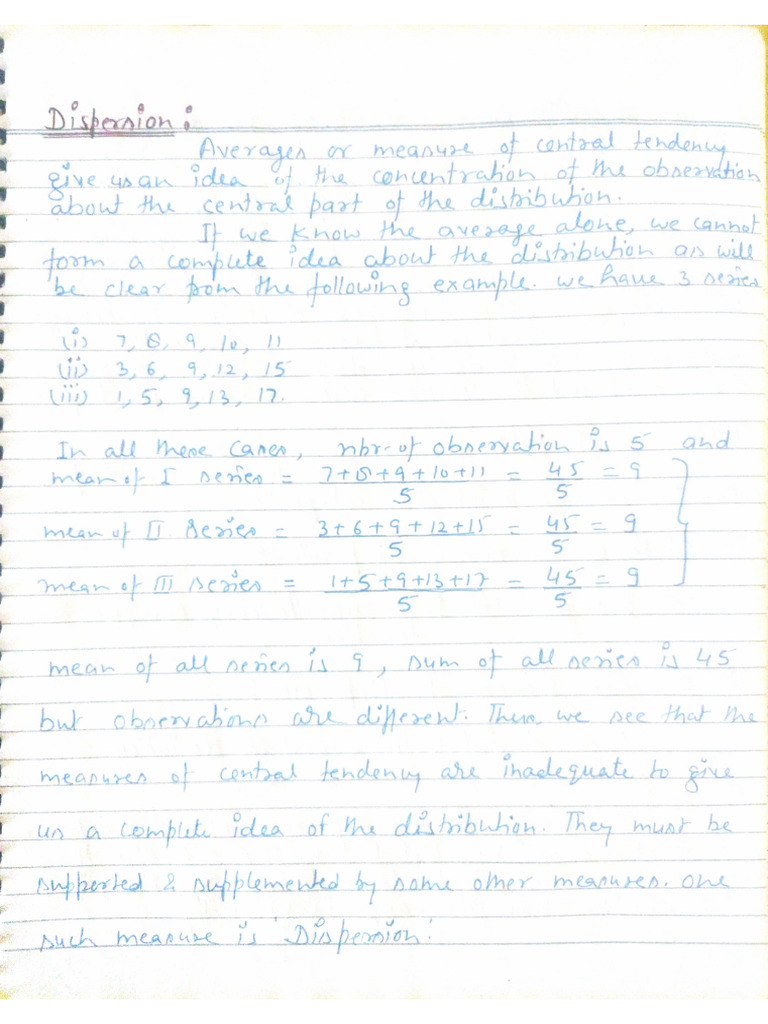 Dispersion:
Averages or measure of central tendency
give us an idea of the concentration of the observation
about the central part of the distribution.
If we know the average alone, we cannot
form a complete idea about the distribution as will
be clear from the following example. we have 3 series
(i) 7, 8, 9, 10, 11
(ii) 3, 6, 9, 12, 15
(iii) 1, 5, 9, 13, 17.
In all these cases, nbr. of observation is 5 and
mean of I series = 7+8+9+10+11 / 5 = 45 / 5 = 9
mean of II Series = 3+6+9+12+15 / 5 = 45 / 5 = 9
mean of III series = 1+5+9+13+17 / 5 = 45 / 5 = 9
mean of all series is 9, sum of all series is 45
but observations are different. Thus, we see that the
measures of central tendency are inadequate to give
us a complete idea of the distribution. They must be
supported & supplemented by some other measures. one
such measure is 'Dispersion.'